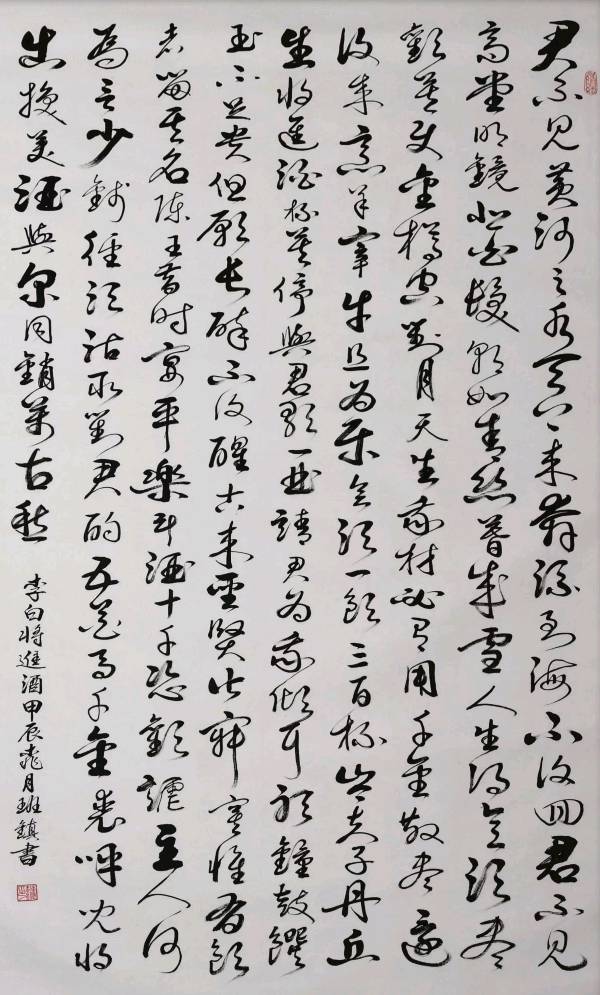 君不見黃河之水天上來奔流到海不復回君不見
高堂明鏡悲白髮朝如青絲暮成雪人生得意須盡
歡莫使金樽空對月天生我材必有用千金散盡還
復來烹羊宰牛且為樂會須一飲三百杯岑夫子丹丘
生將進酒杯莫停與君歌一曲請君為我傾耳聽鐘鼓饌
玉不足貴但願長醉不復醒古來聖賢皆寂寞惟有飲
者留其名陳王昔時宴平樂斗酒十千恣歡謔主人何
為言少錢徑須沽取對君酌五花馬千金裘呼兒將
出換美酒與爾同銷萬古愁
李白將進酒甲辰桃月班鎮書